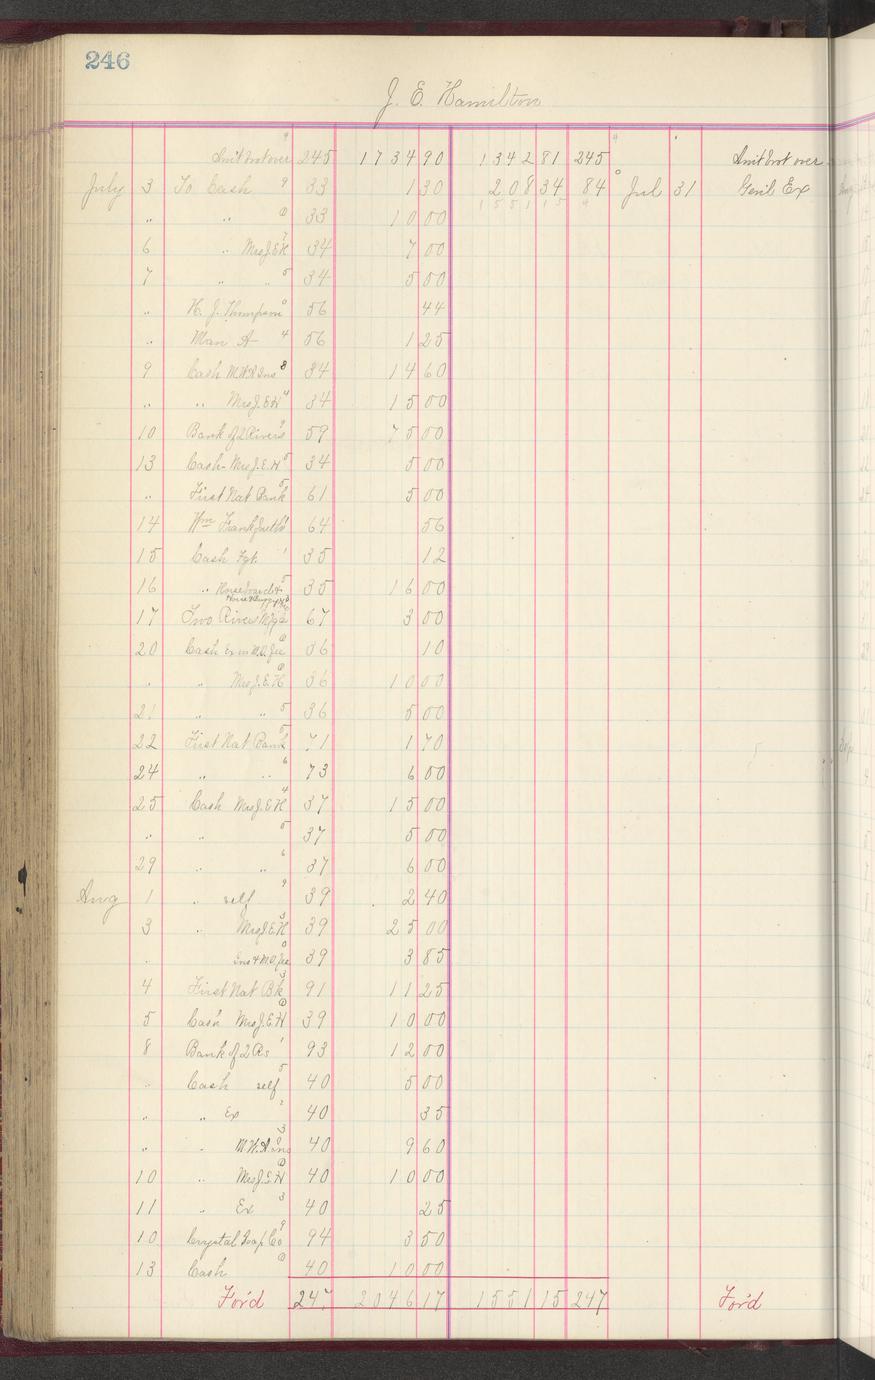 246
J. E. Hamilton
Am't brot over 245 1734 90 1342 81 245 Am't brot over
July 3 To Cash 9 33 1 30 208 34 84 Jul 31 Genl Ex
" " 33 10 00 1551 15
6 " Mrs J.E.H 7 34 7 00
7 " " 5 34 5 00
" H. J. Thompson 56 44
" Man A- 4 56 1 25
9 Cash M.W.A Ins 8 34 14 60
" " Mrs J.E.H 34 15 00
10 Bank of 2 Rivers 59 75 00
13 Cash- Mrs J.E.H 5 34 5 00
" First Nat Bank 5 61 5 00
14 Wm 64 56
15 Cash Fgt. 1 35 12
16 " 5 35 16 00
17 Two Rivers Mfg Co 67 3 00
20 Cash Ex on M.O. 36 10
" " Mrs J.E.H 36 10 00
21 " " 5 36 5 00
22 First Nat Bank 71 1 70
24 " " 6 73 6 00
25 Cash Mrs J.E.H 4 37 15 00
" " 5 37 5 00
29 " " 6 37 6 00
Aug 1 " self 9 39 2 40
3 " Mrs J.E.H 39 25 00
" Ins & M.O. 39 3 85
4 First Nat Bk 3 91 11 25
5 Cash Mrs J.E.H 39 10 00
8 Bank of 2 Rs 1 93 12 00
" Cash self 5 40 5 00
" " Ex 2 40 35
" " M.W.A Ins 3 40 9 60
10 " Mrs J.E.H 40 10 00
11 " Ex 3 40 25
10 Crystal Soap Co 9 94 3 50
13 Cash 40 10 00
For'd 247 2046 17 1551 15 247 For'd